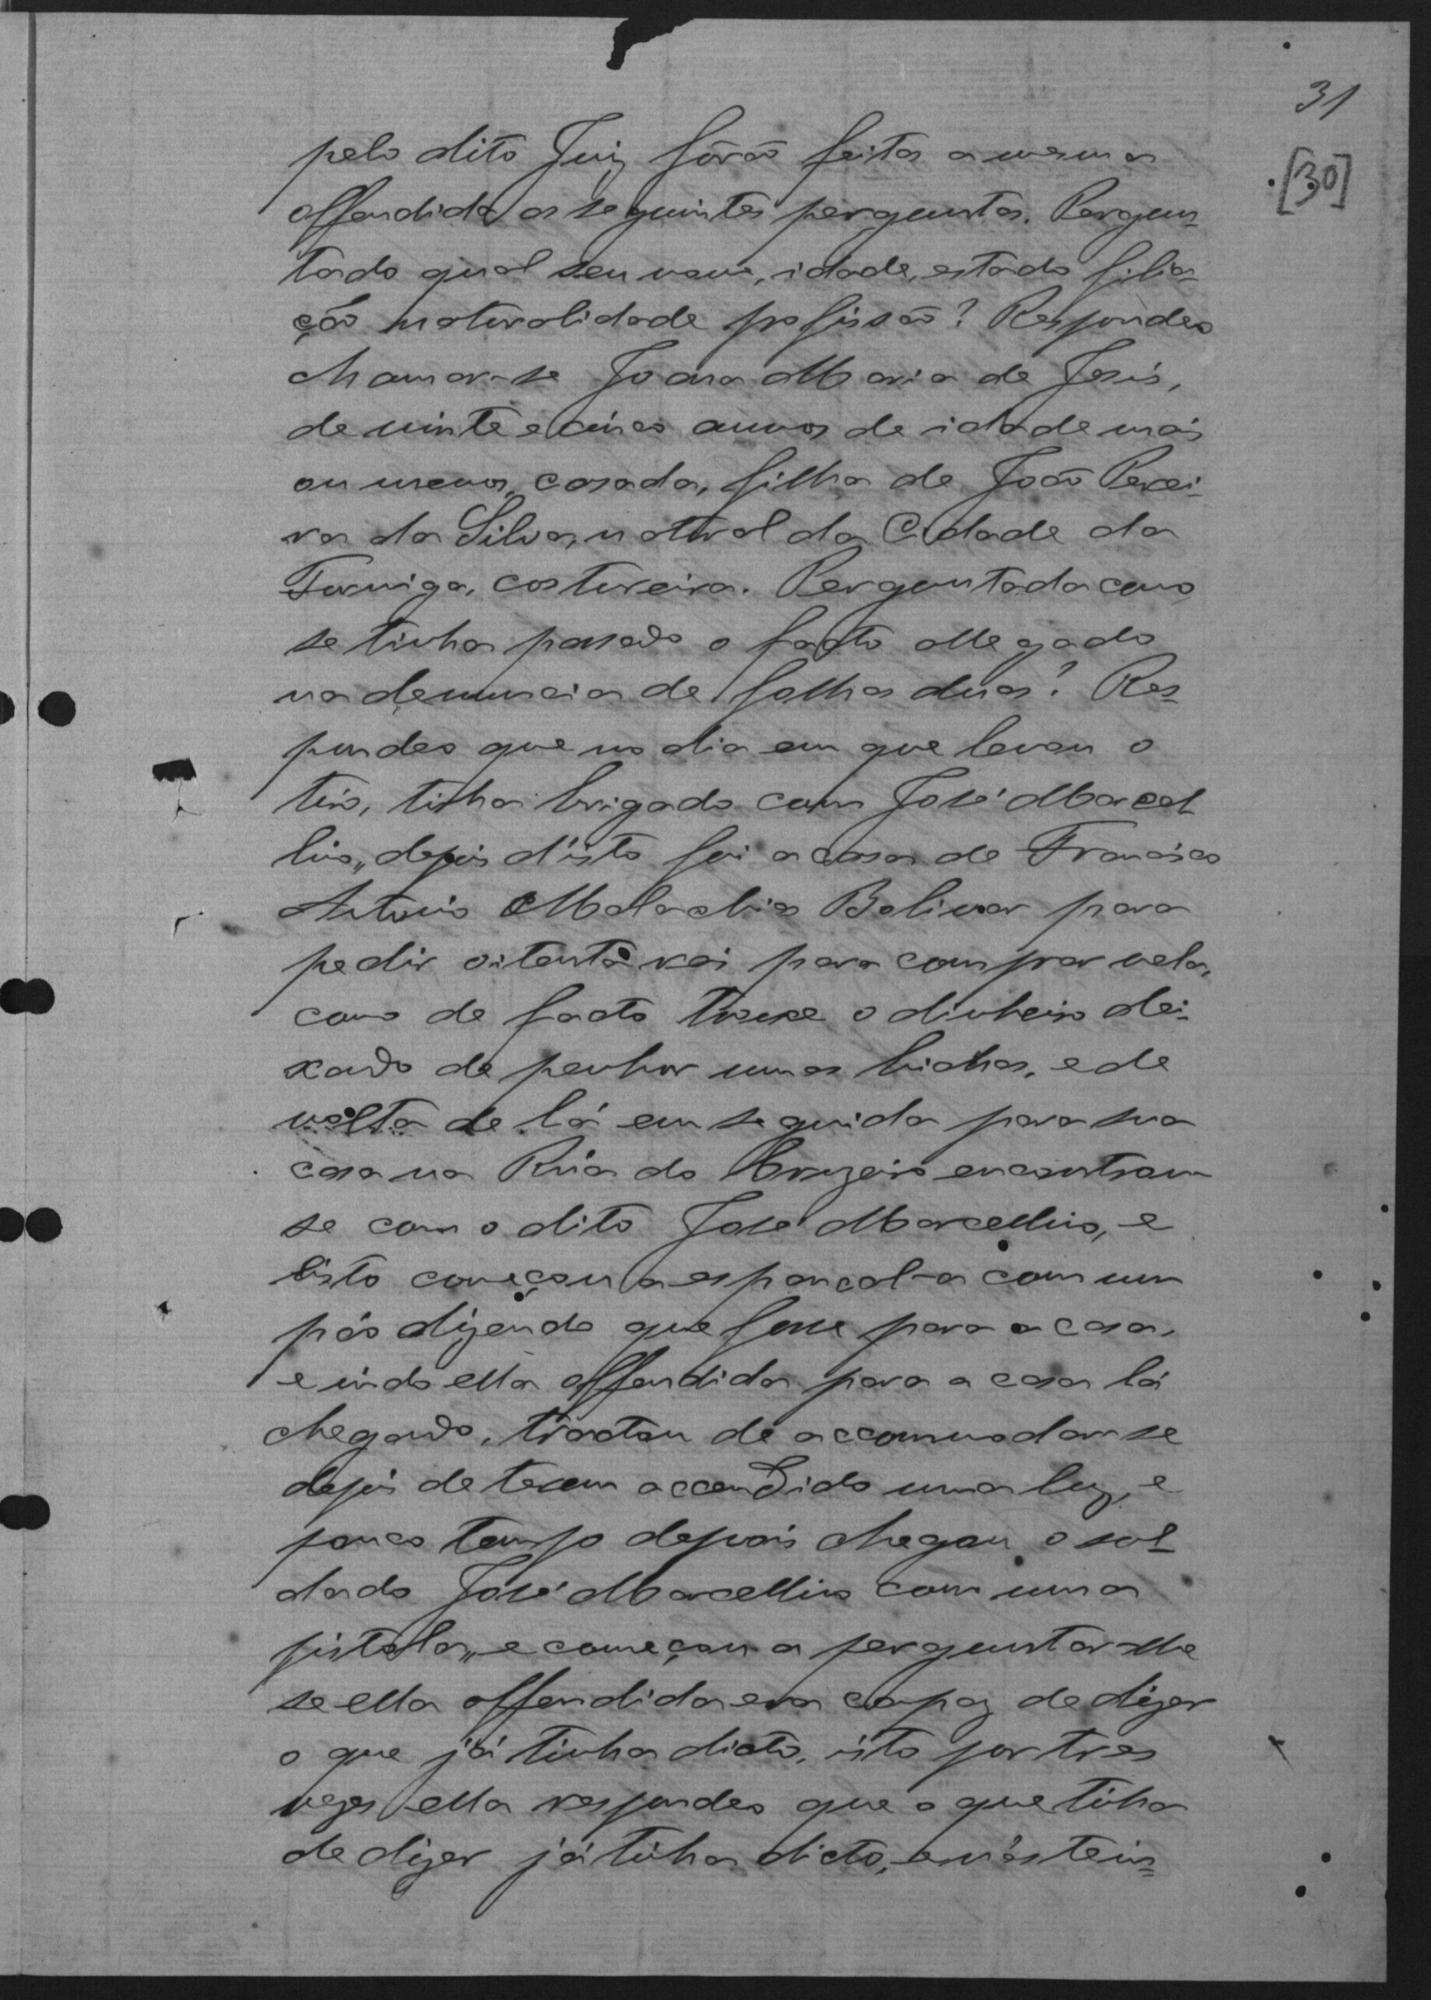 31
[30]
pelo dito Juiz fôrão feitas a mesma
offendida as seguintes perguntas. Pergun-
tado qual seu nome, idade, estado filia-
ção naturalidade profissão? Respondeo
chamar-se Joana Maria de Jesús,
de vinte e cinco annos de idade mais
ou menos, casada, filha de João Perei-
ra da Silva, natural da Cidade da
Formiga, costureira. Perguntada como
se tinha passado o facto allegado
na denuncia de folhas duas? Res-
pondeo que no dia em que levou o
tiro, tinha brigado com José Marcel
lino, depois d'isto foi a casa de Francisco
Antonio Malachias Bolivar para
pedir oitenta reis para comprar vela,
como de facto trouxe o dinheiro dei-
xando de penhor umas bichas, e de
volta de lá em seguida para sua
casa na Rúa do Cruzeiro encontrou
se com o dito José Marcellino, e
isto começou a espancal-a com um
páo dizendo que fosse para a casa,
e indo ella offendida para a casa lá
chegando, tractou de accommodar-se
depois de terem accendido uma luz, e
pouco tempo depois chegou o sol-
dado José Marcellino com uma
pistola, e começou a perguntar-lhe
se ella offendida era capaz de dizer
o que já tinha dicto, isto por tres
vezes ella respondeo que o que tinha
de dizer já tinha dicto,